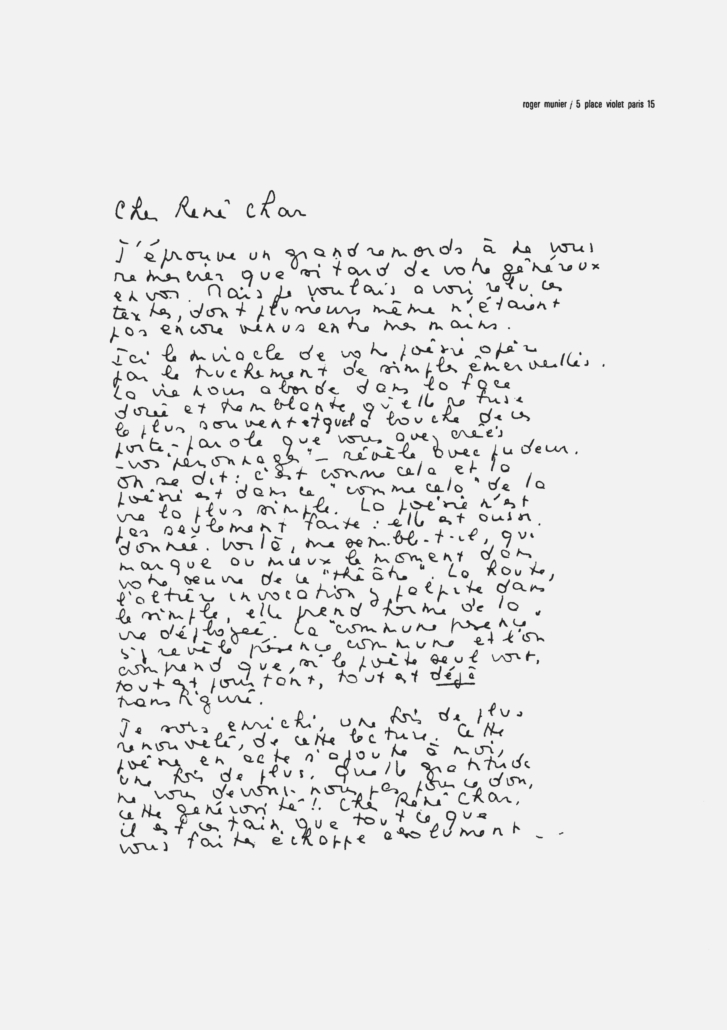 roger munier / 5 place violet paris 15
Cher René Char
J'éprouve un grand remords à ne vous
remercier que si tard de votre généreux
envoi. Mais je voulais avoir relu ces
textes, dont plusieurs même n'étaient
pas encore venus entre mes mains.
Ici le miracle de votre poésie opère
par le truchement de simples émerveillés.
La vie nous aborde dans la face
dorée et tremblante qu'elle refuse
le plus souvent et que la bouche de ces
porte-parole que vous avez créés
-vos "personnages"- révèle avec pudeur.
on se dit : c'est comme cela et la
poésie est dans ce "comme cela" de la
vie la plus simple. La poésie n'est
pas seulement faite : elle est aussi
donnée. Voilà, me semble-t-il, qui
marque au mieux le moment dans
votre oeuvre de ce "théâtre". La haute,
l'altière invocation y palpite dans
le simple, elle prend forme de la
vie déployée. La "commune présence"
s'y révèle présence commune et l'on
comprend que, si le poète seul voit,
tout est pourtant, tout est déjà
transfiguré.
Je sors enrichi, une fois de plus
renouvelé, de cette lecture. Cette
poésie en acte s'ajoute à moi,
une fois de plus. Quelle gratitude
ne vous devons-nous pas pour ce don,
cette générosité !. Cher René Char,
il est certain que tout ce que
vous faites échappe absolument - -